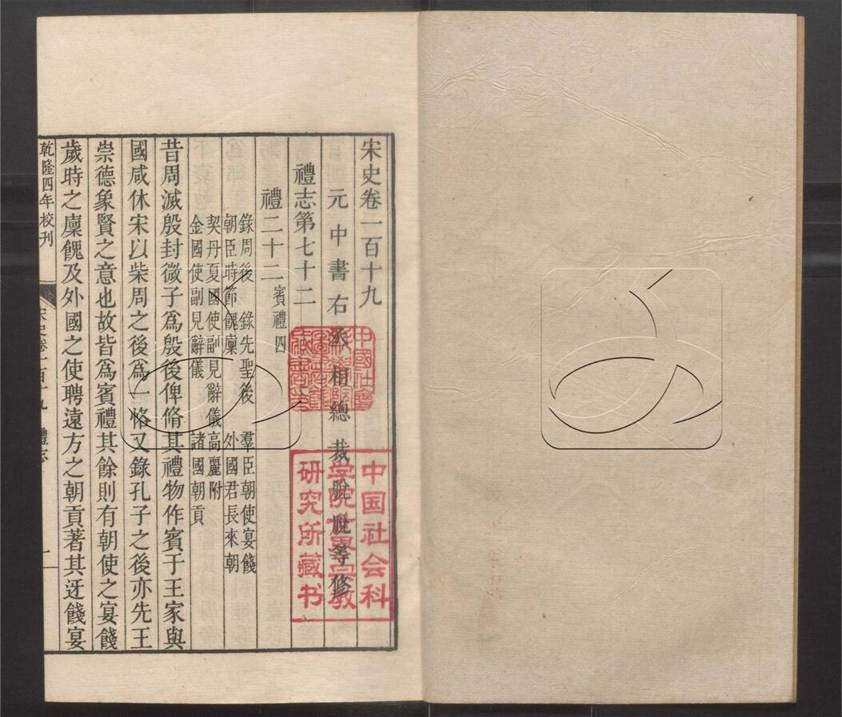 宋史卷一百十九
元中書右丞相總裁脫脫等修
禮志第七十二
禮二十二 賓禮四
錄周後 錄先聖後 羣臣朝使宴餞
朝臣時節餽廩 外國君長來朝
契丹夏國使副見辭儀 高麗附
金國使副見辭儀 諸國朝貢
昔周滅殷封微子爲殷後俾脩其禮物作賓于王家與
國咸休宋以柴周之後爲二恪又錄孔子之後亦先王
崇德象賢之意也故皆爲賓禮其餘則有朝使之宴餞
歲時之廩餽及外國之使聘遠方之朝貢著其迓餞宴
乾隆四年校刊
宋史卷一百十九 禮志
一
中国社会科
学院世界宗教
研究所藏书